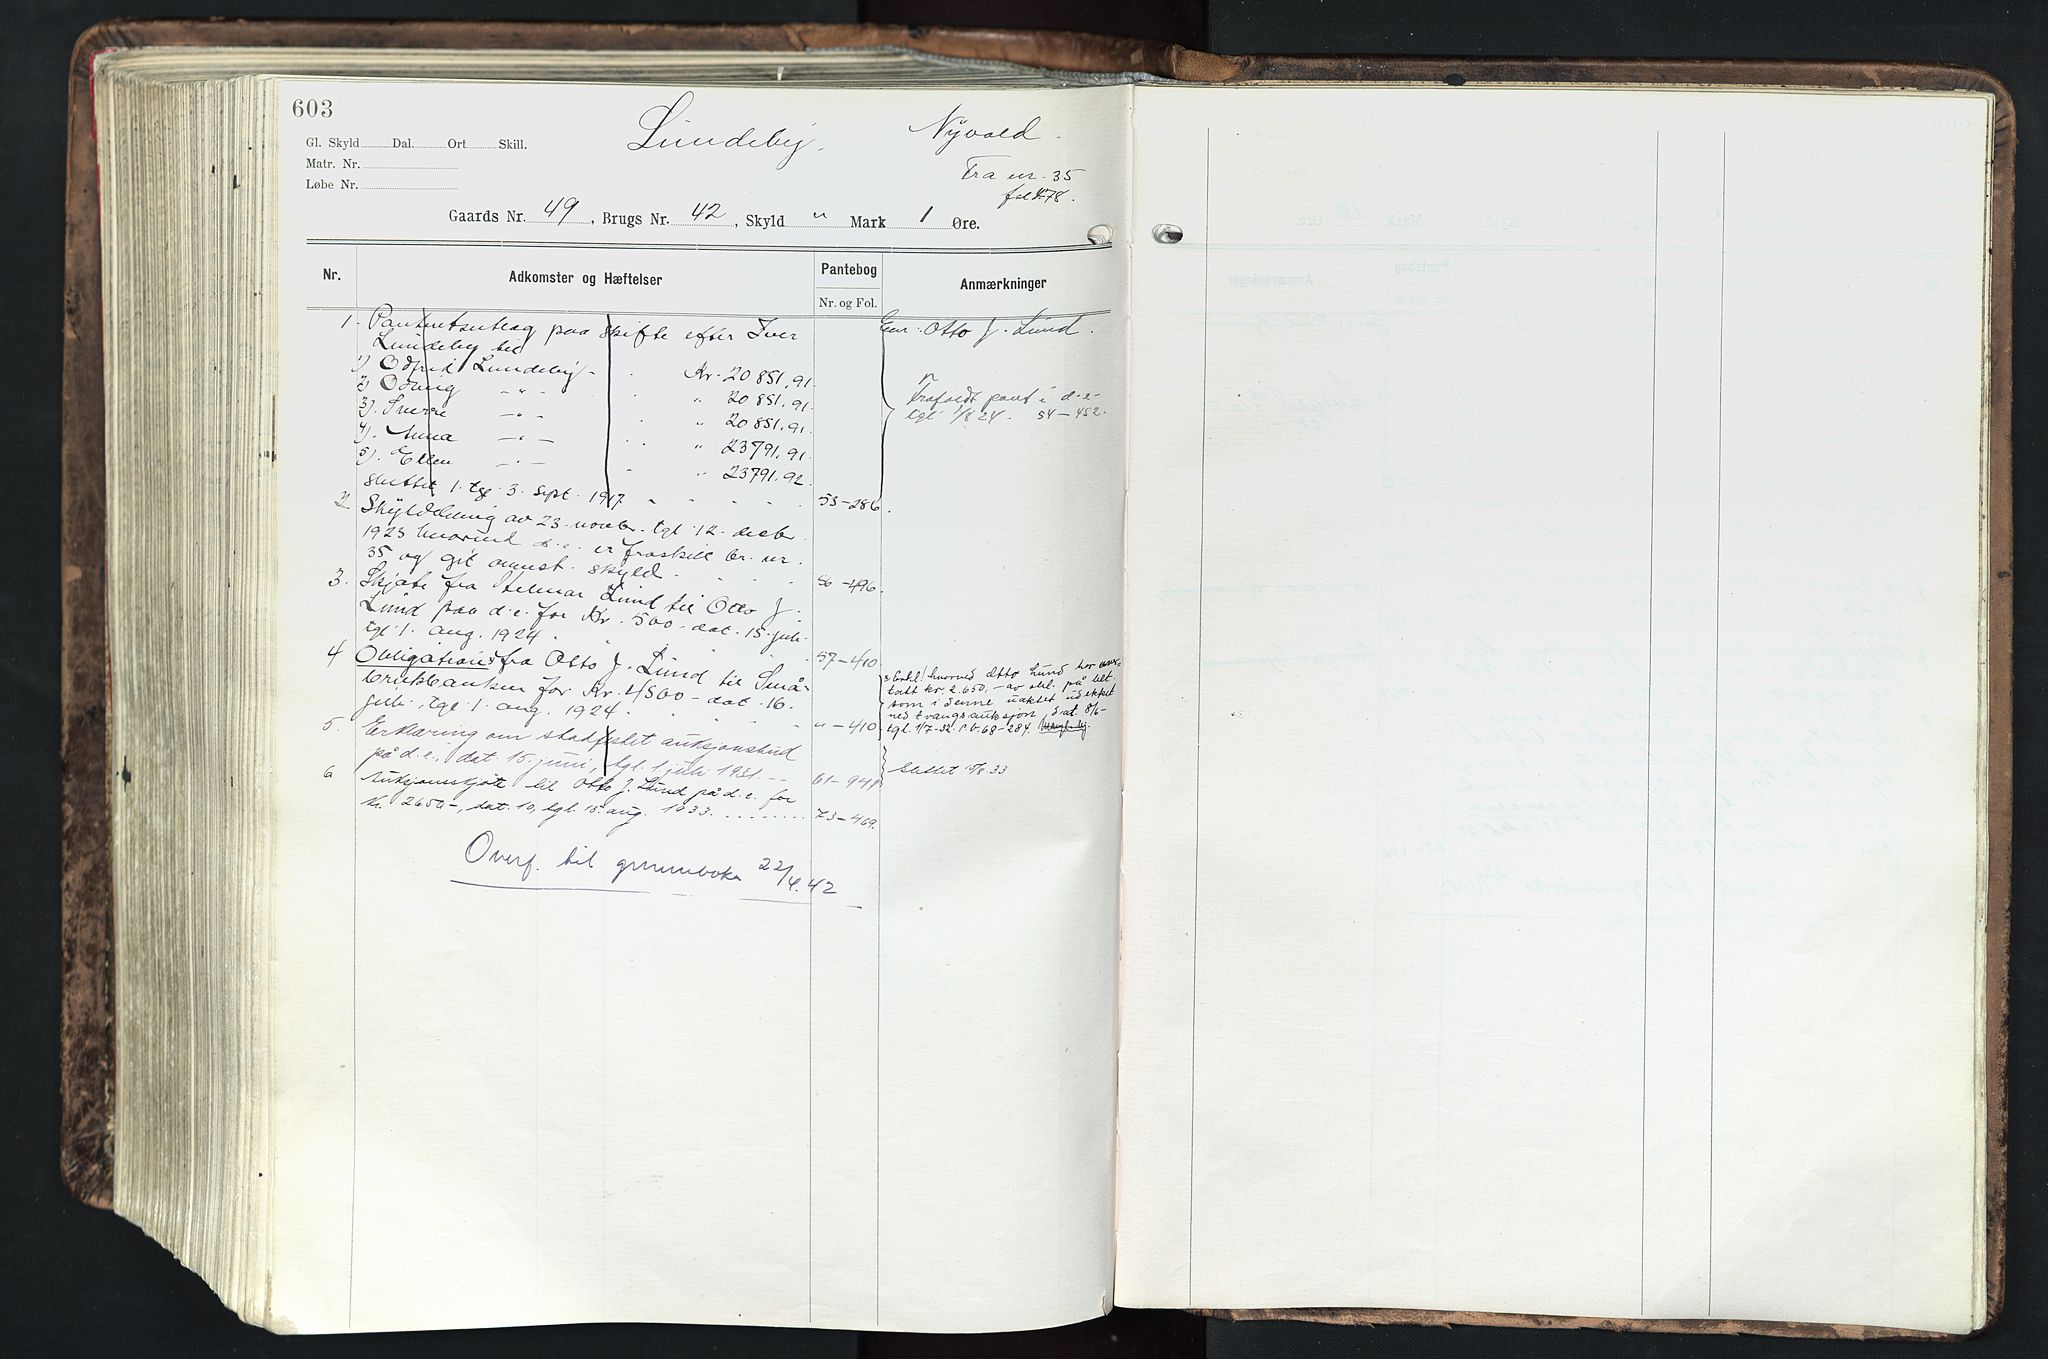 603
Gl. Skyld Dal. Ort Skill.
Matr. Nr.
Løbe Nr.
Lundeby. Nyvold
Fra nr. 35
fol 478.
Gaards Nr. 49, Brugs Nr. 42, Skyld " Mark 1 Øre.
Nr. Adkomster og Hæftelser Pantebog Anmærkninger
Nr. og Fol.
1. paa skifte efter Iver
Eier: Otto J. Lund.
Lundeby til
1) Odfrid Lundeby - Kr. 20851,91
2) Odung - " - " 20851,91
3). Sverre - " - " 20851,91
4). Anna - " - " 23791,91
5). Ellen - " - " 23791,92
sluttet 1. tgl. 3. sept. 1917 53-286.
Frafaldt pant i d.e.
tgl 1/8 24 - 54-452.
2 Skylddeling av 23 novbr. tgl. 12. decbr
1923 hvorved d.e. er fraskilt br. nr.
35 og git skyld. 56-496
3. Skjøte fra Helmar Lund til Otto J.
Lund paa d.e. for Kr. 500- dat. 15. juli
tgl. 1. aug. 1924. 57-410
4 Obligation fra Otto J. Lund til Små-
brukbanken for Kr. 4500- dat. 16.
juli, tgl. 1. aug. 1924. " -410
Erkl. hvorved Otto Lund har over-
tatt kr. 2.650,- av obl. på
som i denne uaktet
ved tvangsauksjon, dat. 8/6-
tgl. 1/7-32. P.b. 68-284.
5. Erklæring om stadfestet auksjonsbud
på d.e., dat. 15. juni, tgl. 1. juli 1931. 61-947
Slettet 15/8 33
6 Auksjonsskjøte til Otto J. Lund på d.e. for
kr. 2650-, dat. 10, tgl. 15. aug. 1933. 73-469.
Overf. til grunnboka 22/4.42